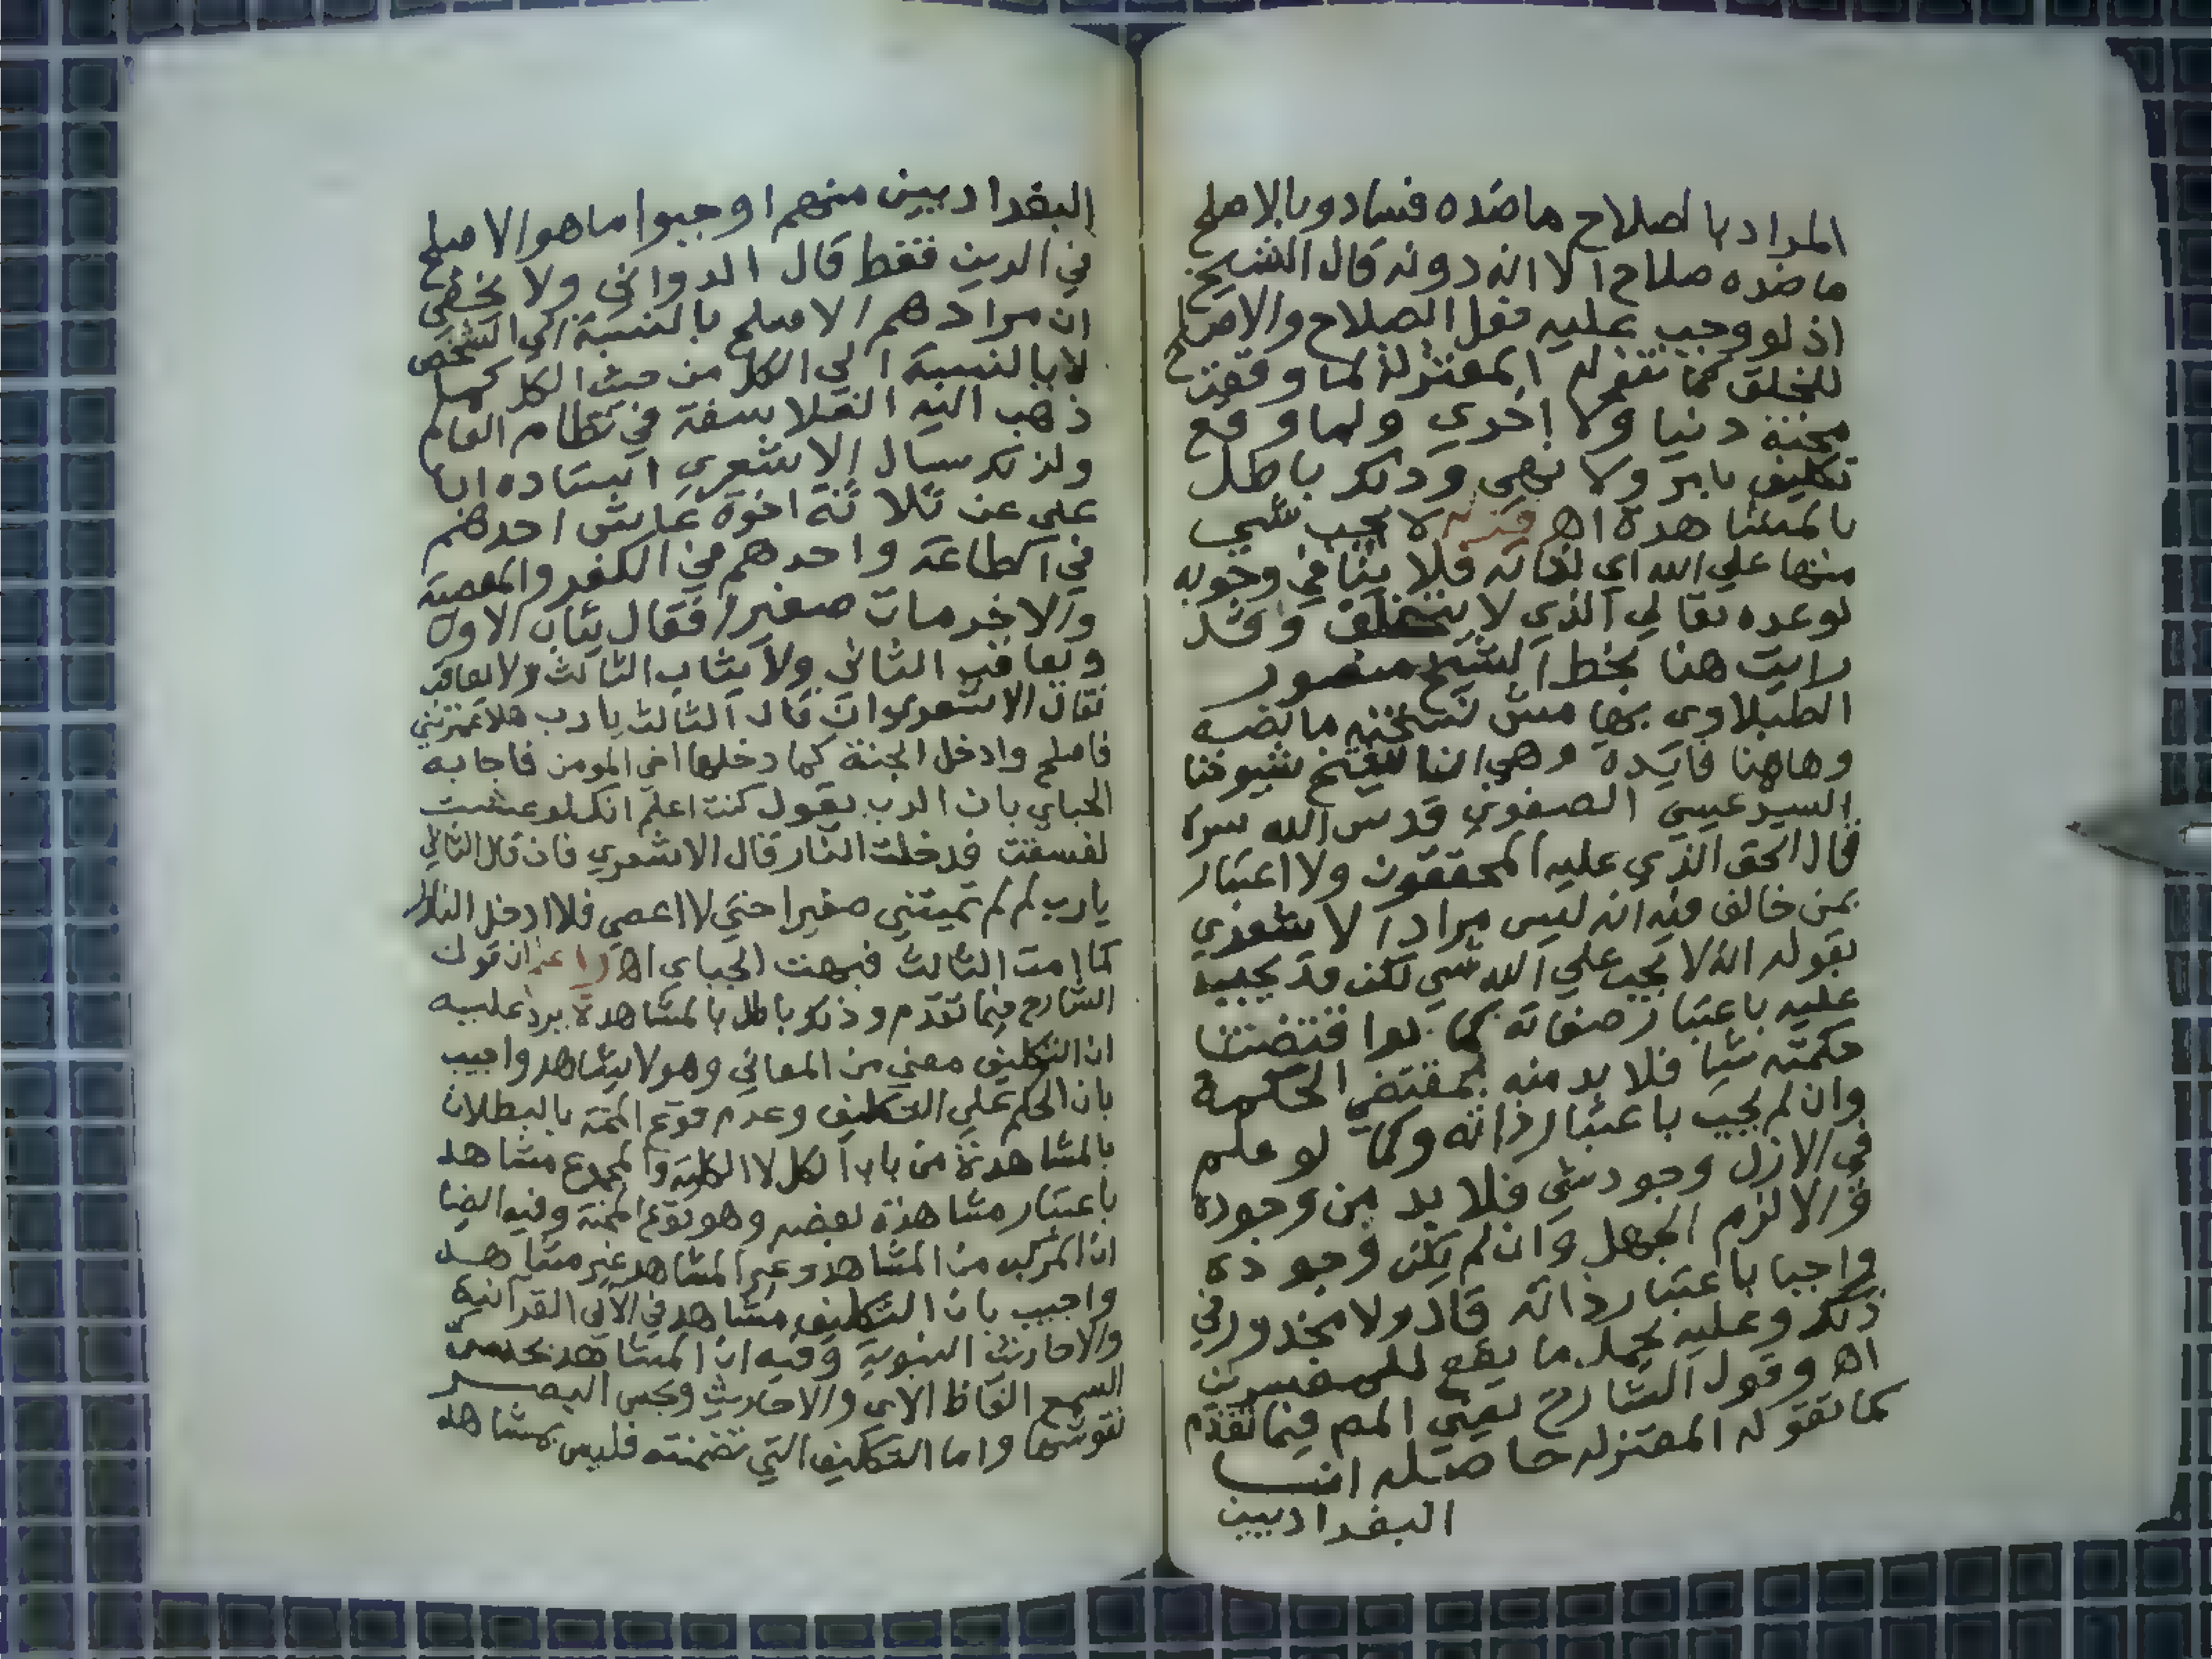 المراد بالصلاح ما ضده فساد وبالاصلح
ما ضده صلاح الا انه دونه قال الشيخ
اذ لو وجب عليه فعل الصلاح والاصلح
للخلق كما تقوله المعتزلة لما وقعت
محنة دنيا ولا اخري ولما وقع
تكليف بامر ولا نهي وذلك باطل
بالمشاهدة اه قوله لا يجب شي
منها علي الله اي لذاته فلا ينافي وجوبه
لوعده تعالي الذي لا يتخلف وقد
رايت هنا بخط الشيخ منصور
الطبلاوي بهامش نسخته ما نصه
وهاهنا فايدة وهي ان شيخ شيوخنا
السيد عيسي الصفوي قدس الله سره
قال الحق الذي عليه المحققون ولا اعتبار
بمن خالف فيه انه ليس مراد الاشعري
بقوله انه لا يجب علي الله شي لكن قد يجب
عليه باعتبار صفاته كما لو اقتضت
حكمته شيا فلا بد منه بمقتضي الحكمة
وان لم يجب باعتبار ذاته وكما لو علم
في الازل وجود شي فلا بد من وجوده
والا لزم الجهل وان لم يكن وجوده
واجبا باعتبار ذاته قال ولا محذور في
ذلك وعليه يحمل ما يقع للمفسرين
اه وقول الشارح يعني المص فيما تقدم
كما تقوله المعتزله حاصله ان
البغداديين
البغداديين منهم اوجبوا ما هو الاصلح
في الدين فقط قال الدواني ولا يخفي
ان مرادهم الاصلح بالنسبة الي الشخص
لا بالنسبة الي الكل من حيث الكل كما
ذهب اليه الفلاسفة في نظام العالم
ولذلك سال الاشعري استاده ابا
علي عن ثلاثة اخوة عاش احدهم
في الطاعة واحدهم في الكفر والمعصية
والاخر مات صغيرا فقال يثاب الاول
ويعاقب الثاني ولا يثاب الثالث ولا يعاقب
فقال الاشعري ان قال الثالث يارب هلا عمرتني
فاصلح وادخل الجنة كما دخلها اخي المومن فاجابه
الجباي بان الرب يقول كنت اعلم انك لو عشت
لفسقت فدخلت النار قال الاشعري فان قال الثاني
يارب لم لم تميتني صغيرا حتي لا اعصي فلا ادخل النار
كما امت الثالث فبهت الجباي اه واعلم ان قول
الشارح فيما تقدم وذلك باطل بالمشاهدة يرد عليه
ان التكليف معني من المعاني وهو لا يشاهد واجيب
بان الحكم علي التكليف وعدم وقوع المحنة بالبطلان
بالمشاهدة من باب الكل لا الكلية والمجموع مشاهد
باعتبار مشاهدة بعضه وهو وقوع المحنة وفيه ايضا
ان المركب من المشاهد وغير المشاهد غير مشاهد
واجيب بان التكليف مشاهد في الآي القرآنية
والاحاديث النبوية وفيه ان المشاهد بحس
السمع الفاظ الاي والاحاديث وبحس البصر
نقوشها واما التكليف التي تضمنته فليس بمشاهد